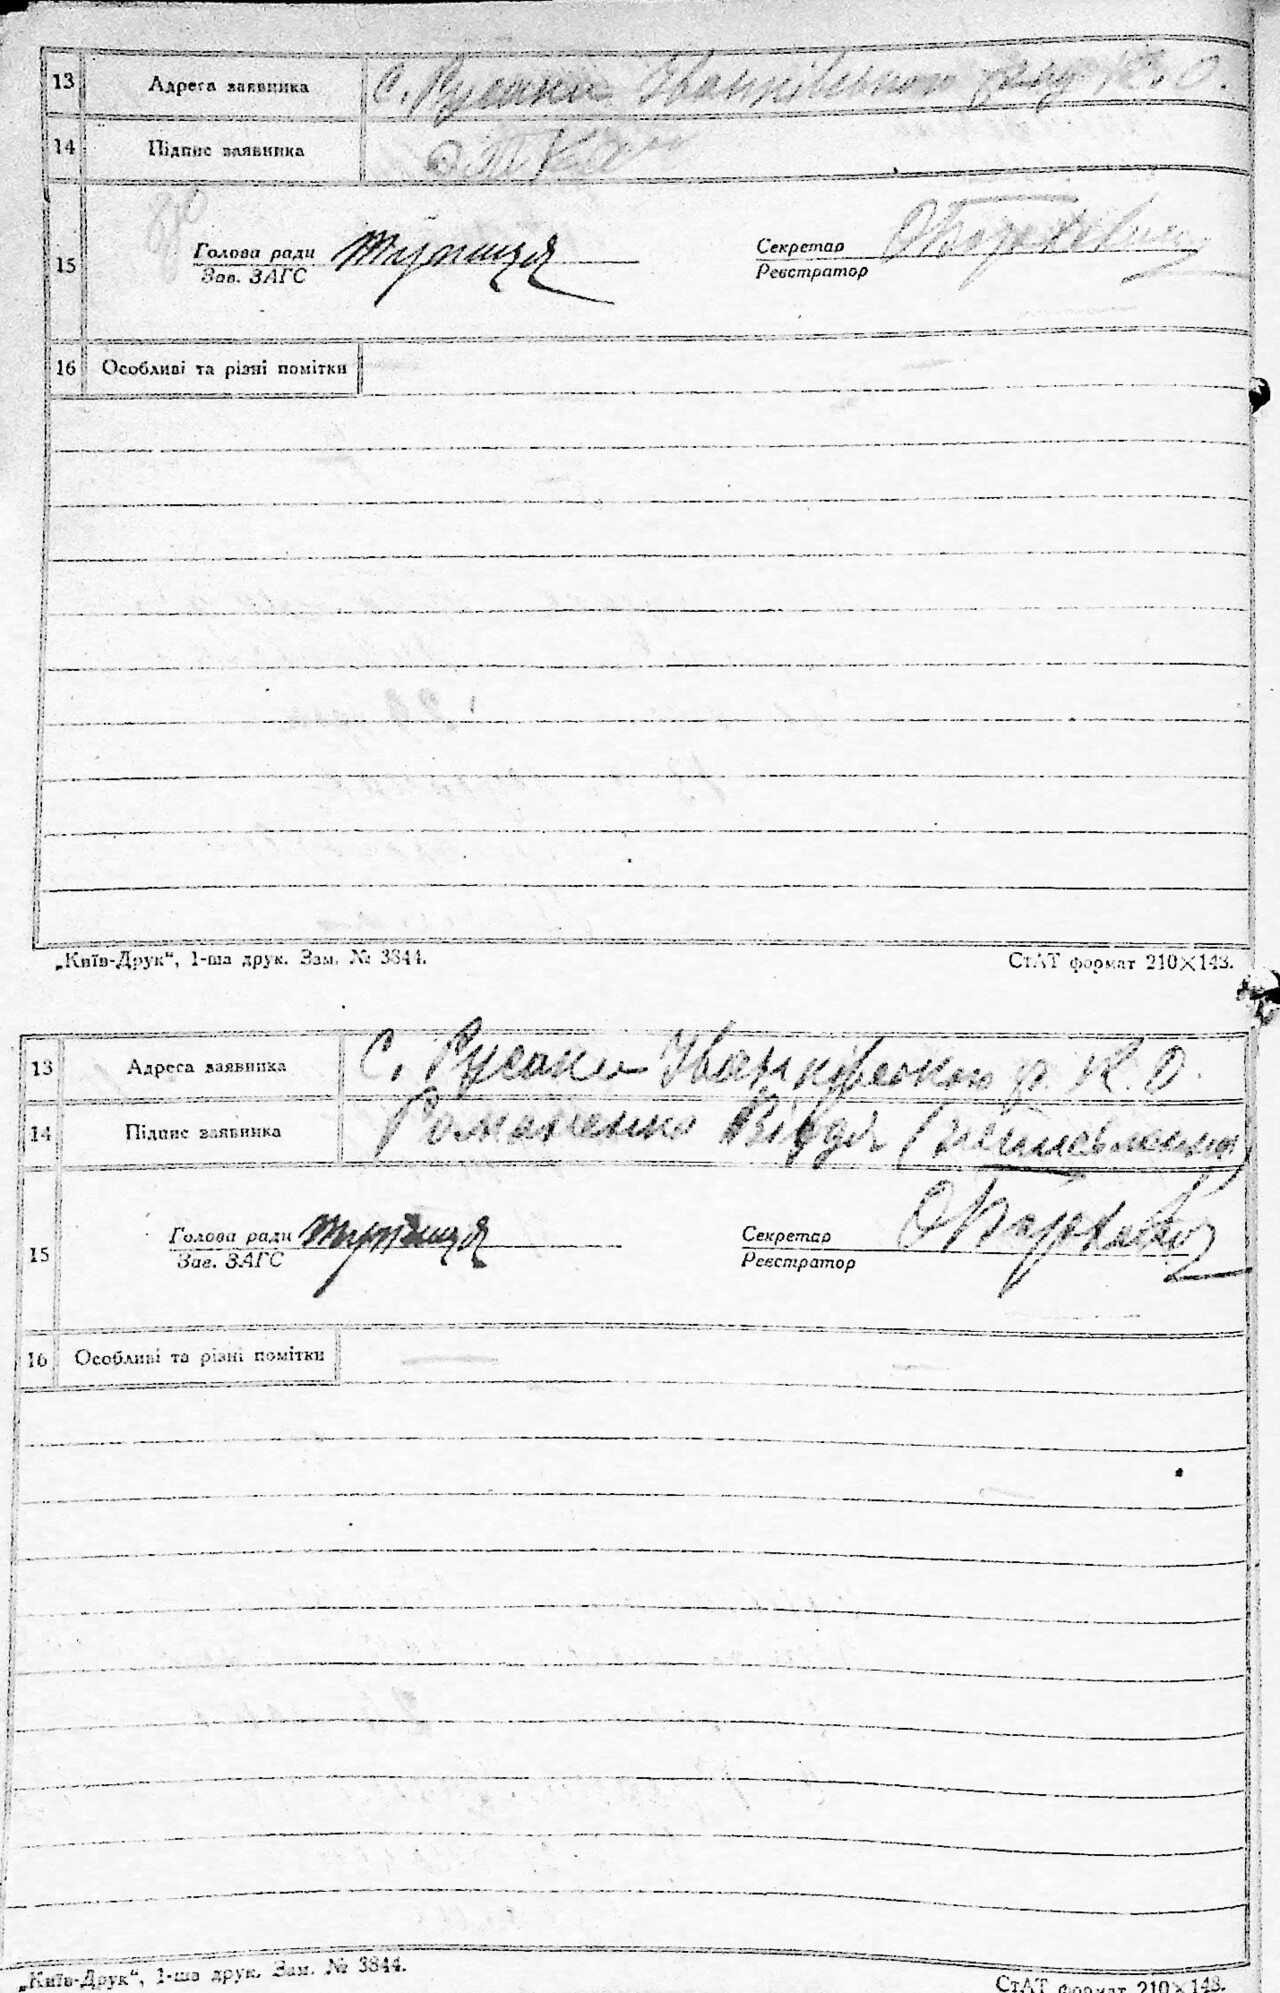 13 Адреса заявника с. Русаки Іванківського р. К. О.
14 Підпис заявника
15 Голова ради Секретар
Зав. ЗАГС Реєстратор
16 Особливі та різні помітки
„Київ-Друк“, 1-ша друк. Зам. № 3844. СтАТ формат 210×148.
13 Адреса заявника с. Русаки Іванківського р. К. О.
14 Підпис заявника Романенко
15 Голова ради Секретар
Зав. ЗАГС Реєстратор
16 Особливі та різні помітки
„Київ-Друк“, 1-ша друк. Зам. № 3844. СтАТ формат 210×148.